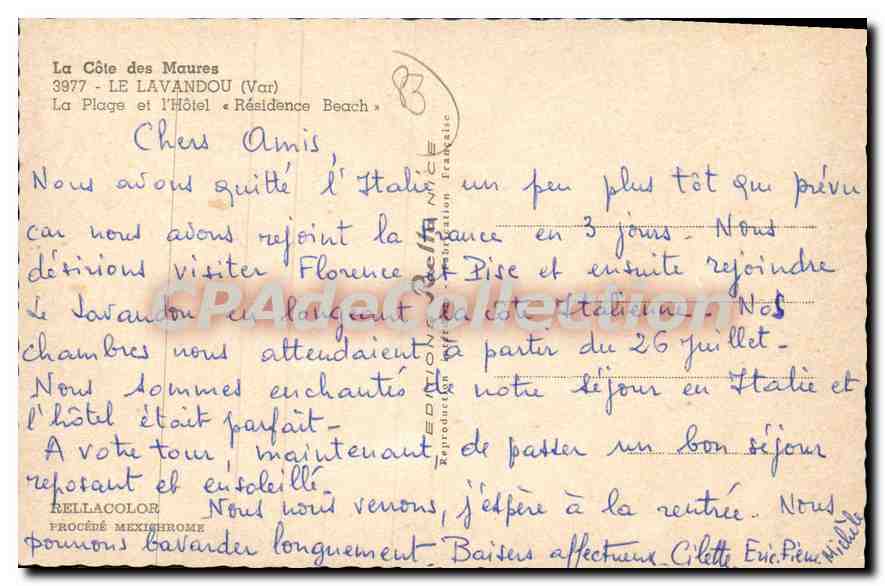 La Côte des Maures
3977 - LE LAVANDOU (Var)
La Plage et l'Hôtel « Résidence Beach »
83
Chers Amis,
Nous avons quitté l'Italie un peu plus tôt que prévu
car nous avons rejoint la France en 3 jours - Nous
désirions visiter Florence et Pise et ensuite rejoindre
Le Lavandou en longeant la côte Italienne - Nos
chambres nous attendaient à partir du 26 juillet -
Nous sommes enchantés de notre séjour en Italie et
l'hôtel était parfait -
A votre tour, maintenant, de passer un bon séjour
reposant et ensoleillé.
Nous nous verrons, j'espère à la rentrée. Nous
pourrons bavarder longuement. Baisers affectueux. Cilette Eric. Pierre
Michèle
RELLACOLOR
PROCÉDÉ MEXICHROME
EDITIONS Rella NICE
Reproduction Interdite - Fabrication Française
CPAdeCollection